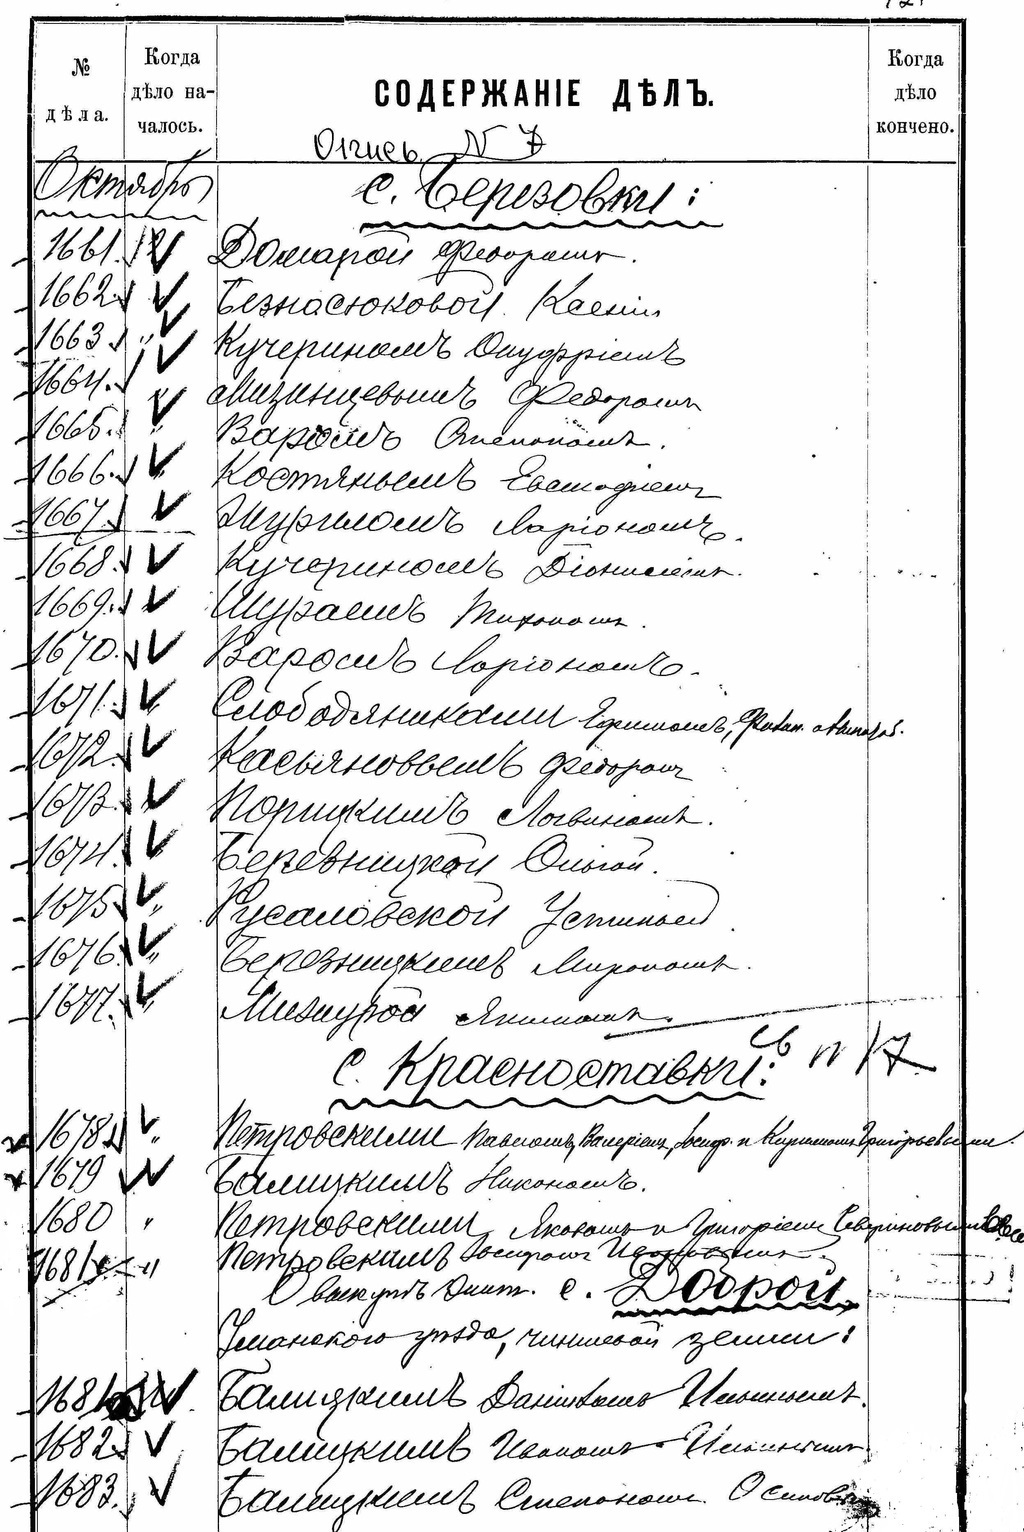 № дѣла.
Когда дѣло началось.
СОДЕРЖАНІЕ ДѢЛЪ.
Когда дѣло кончено.
Опись N 7
Октябрь
с. Березовки:
1661. 12 Домарой Федоромъ.
1662. Безнасюковой Ксеніи
1663 " Кучериномъ Онуфріемъ
1664. " Мизинцевымъ Федоромъ
1665. " Варомъ Степаномъ.
1666. " Костянымъ Евстафіемъ
1667 Шуриломъ Ларіономъ.
1668. Кучериномъ Діонисіемъ.
1669. Шураемъ Тихономъ.
1670. Варомъ Ларіономъ.
1671. " Слободяниками Ефимомъ,
1672. " Касьяновымъ Федоромъ
1673. " Порицкимъ Логвиномъ.
1674. " Березницкой Ольгой.
1675 " Русаловской Устиньей
1676. " Березницкимъ Мирономъ.
1677. " Мизигурой Якимомъ.
с. Красноставки:
N 17
1678 " Петровскими Павломъ, Валеріем, Іосиф. и Григорьевыми.
1679 Балицкимъ Никономъ.
1680 " Петровскими Яковомъ и Григоріемъ Севериновыми
1681 " Петровскимъ Іосифомъ
О выкупѣ с. Доброй
Уманского уѣзда, чиншевой земли:
1681 Балицкимъ Даніиломъ Ильинымъ.
1682. Балицкимъ Иваномъ Ильинымъ
1683. Балицкимъ Степаномъ Осиповымъ